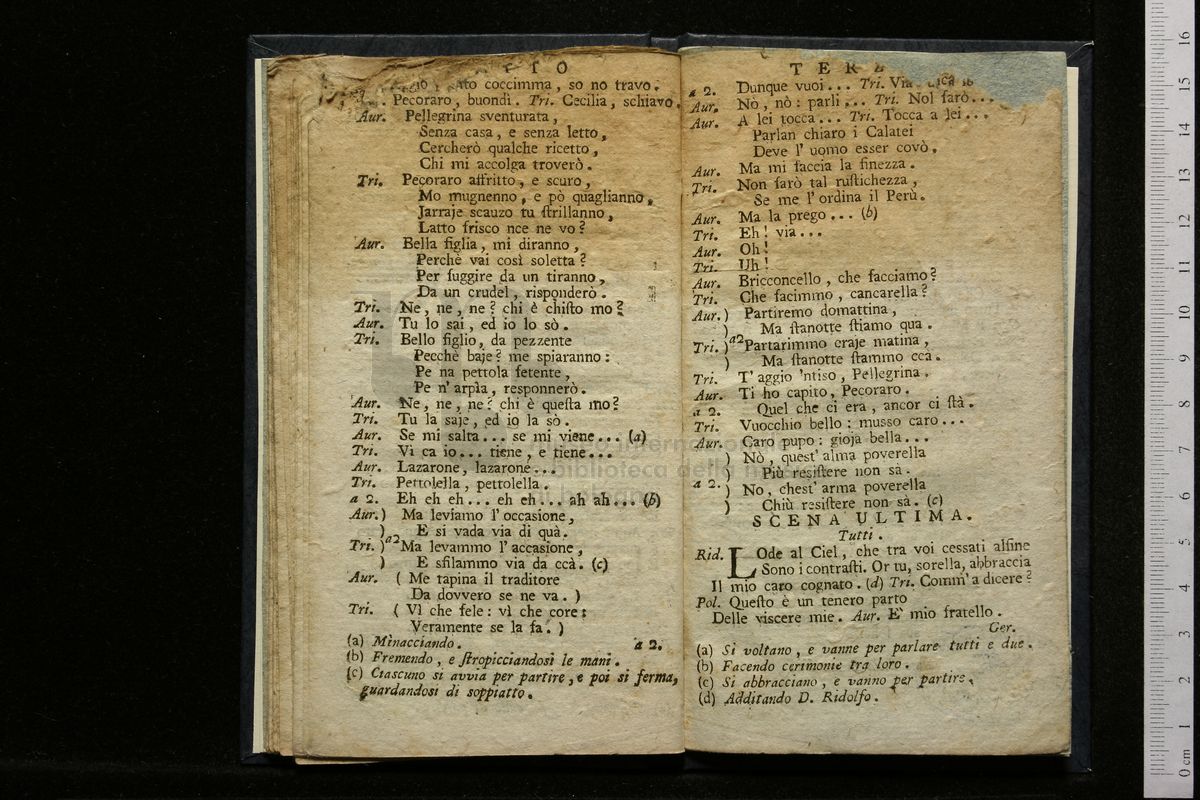 coccimma, so no travo.
Pecoraro, buondì. Tri. Cecilia, schiavo.
Aur. Pellegrina sventurata,
Senza casa, e senza letto,
Cercherò qualche ricetto,
Chi mi accolga troverò.
Tri. Pecoraro affritto, e scuro,
Mo mugnenno, e pò quaglianno,
Jarraje scauzo tu ſtrillanno,
Latto frisco nce ne vo?
Aur. Bella figlia, mi diranno,
Perchè vai così soletta?
Per fuggire da un tiranno,
Da un crudel, risponderò.
Tri. Ne, ne, ne? chi è chiſto mo?
Aur. Tu lo sai, ed io lo sò.
Tri. Bello figlio, da pezzente
Pecchè baje? me spiaranno:
Pe na pettola fetente,
Pe n' arpìa, responnerò.
Aur. Ne, ne, ne? chi è queſta mo?
Tri. Tu la saje, ed io la sò.
Aur. Se mi salta... se mi viene... (a)
Tri. Vi ca io... tiene, e tiene...
Aur. Lazarone, lazarone...
Tri. Pettolella, pettolella.
a 2. Eh eh eh... eh eh... ah ah... (b)
Aur. ) Ma leviamo l' occasione,
) E si vada via di quà.
Tri. ) a2 Ma levammo l' accasione,
) E sfilammo via da ccà. (c)
Aur. ( Me tapina il traditore
Da dovvero se ne va. )
Tri. ( Vì che fele: vì che core:
Veramente se la fa. )
a 2.
(a) Minacciando.
(b) Fremendo, e ſtropicciandosi le mani.
(c) Ciascuno si avvia per partire, e poi si ferma,
guardandosi di soppiatto.
a 2. Dunque vuoi... Tri. Via
Aur. Nò, nò: parli... Tri. Nol farò...
Aur. A lei tocca... Tri. Tocca a lei...
Parlan chiaro i Calatei
Deve l' uomo esser covò.
Aur. Ma mi faccia la finezza.
Tri. Non farò tal ruſtichezza,
Se me l' ordina il Perù.
Aur. Ma la prego... (b)
Tri. Eh! via...
Aur. Oh!
Tri. Uh!
Aur. Bricconcello, che facciamo?
Tri. Che facimmo, cancarella?
Aur. ) Partiremo domattina,
) Ma ſtanotte ſtiamo qua.
Tri. ) a2 Partarimmo craje matina,
) Ma ſtanotte ſtammo ccà.
Tri. T' aggio 'ntiso, Pellegrina.
Aur. Ti ho capito, Pecoraro.
a 2. Quel che ci era, ancor ci ſtà.
Tri. Vuocchio bello: musso caro...
Aur. Caro pupo: gioja bella...
) Nò, quest' alma poverella
) Più resiſtere non sà.
a 2. ) No, chest' arma poverella
) Chiù resiſtere non sà. (c)
SCENA ULTIMA.
Tutti.
Rid. LOde al Ciel, che tra voi cessati alfine
Sono i contraſti. Or tu, sorella, abbraccia
Il mio caro cognato. (d) Tri. Comm' a dicere?
Pol. Queſto è un tenero parto
Delle viscere mie. Aur. E' mio fratello.
Ger.
(a) Si voltano, e vanne per parlare tutti e due.
(b) Facendo cerimonie tra loro.
(c) Si abbracciano, e vanno per partire.
(d) Additando D. Ridolfo.